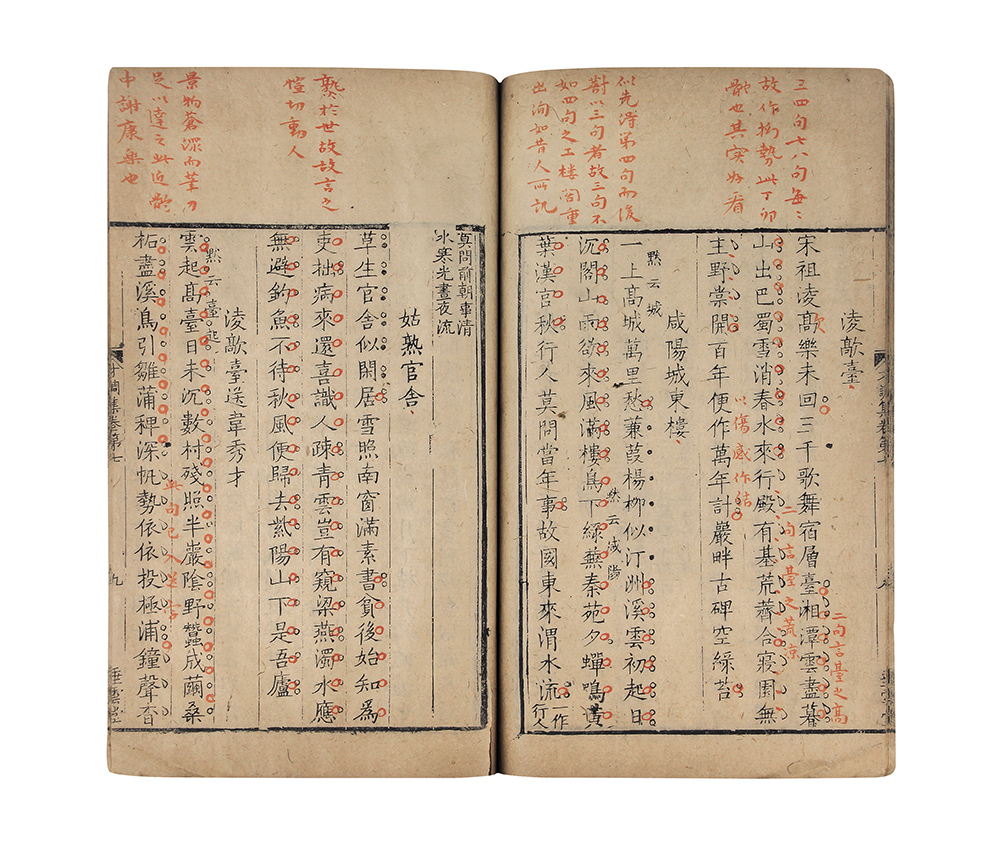 三四句七八句每〻
故作拗勢此丁卯
體也其實好看
似先得第四句而後
對以三句者故三句不
如四句之工樓閣重
出洵如昔人所譏
凌敲臺
宋祖凌高樂未回三千歌舞宿層臺湘潭雲盡暮
歊
二句言臺之高
山出巴蜀雪消春水來行殿有基荒薺合寢園無
二句言臺之荒涼
主野棠開百年便作萬年計巖畔古碑空綠苔
以傷感作結
咸陽城東樓
一上高城萬里愁蒹葭楊柳似汀洲溪雲初起日
黙云城
沉閣山雨欲來風滿樓鳥下綠蕪秦苑夕蟬鳴黃
黙云咸陽
葉漢宮秋行人莫問當年事故國東來渭水流一作行人
莫問前朝事清
水寒光晝夜流
姑熟官舍
草生官舍似閑居雪照南窗滿素書貧後始知為
吏拙病來還喜識人疎青雲豈有窺梁燕濁水應
無避釣魚不待秋風便歸去紫陽山下是吾廬
凌敲臺送韋秀才
雲起高臺日未沉數村殘照半巖陰野蠶成繭桑
黙云臺起
柘盡溪鳥引雛蒲稗深帆勢依依投極浦鐘聲杳
於世故故言之
愷切動人
景物蒼深而筆力
足以達之此近體
中謝康樂也
才調集卷第七
九
垂雲堂